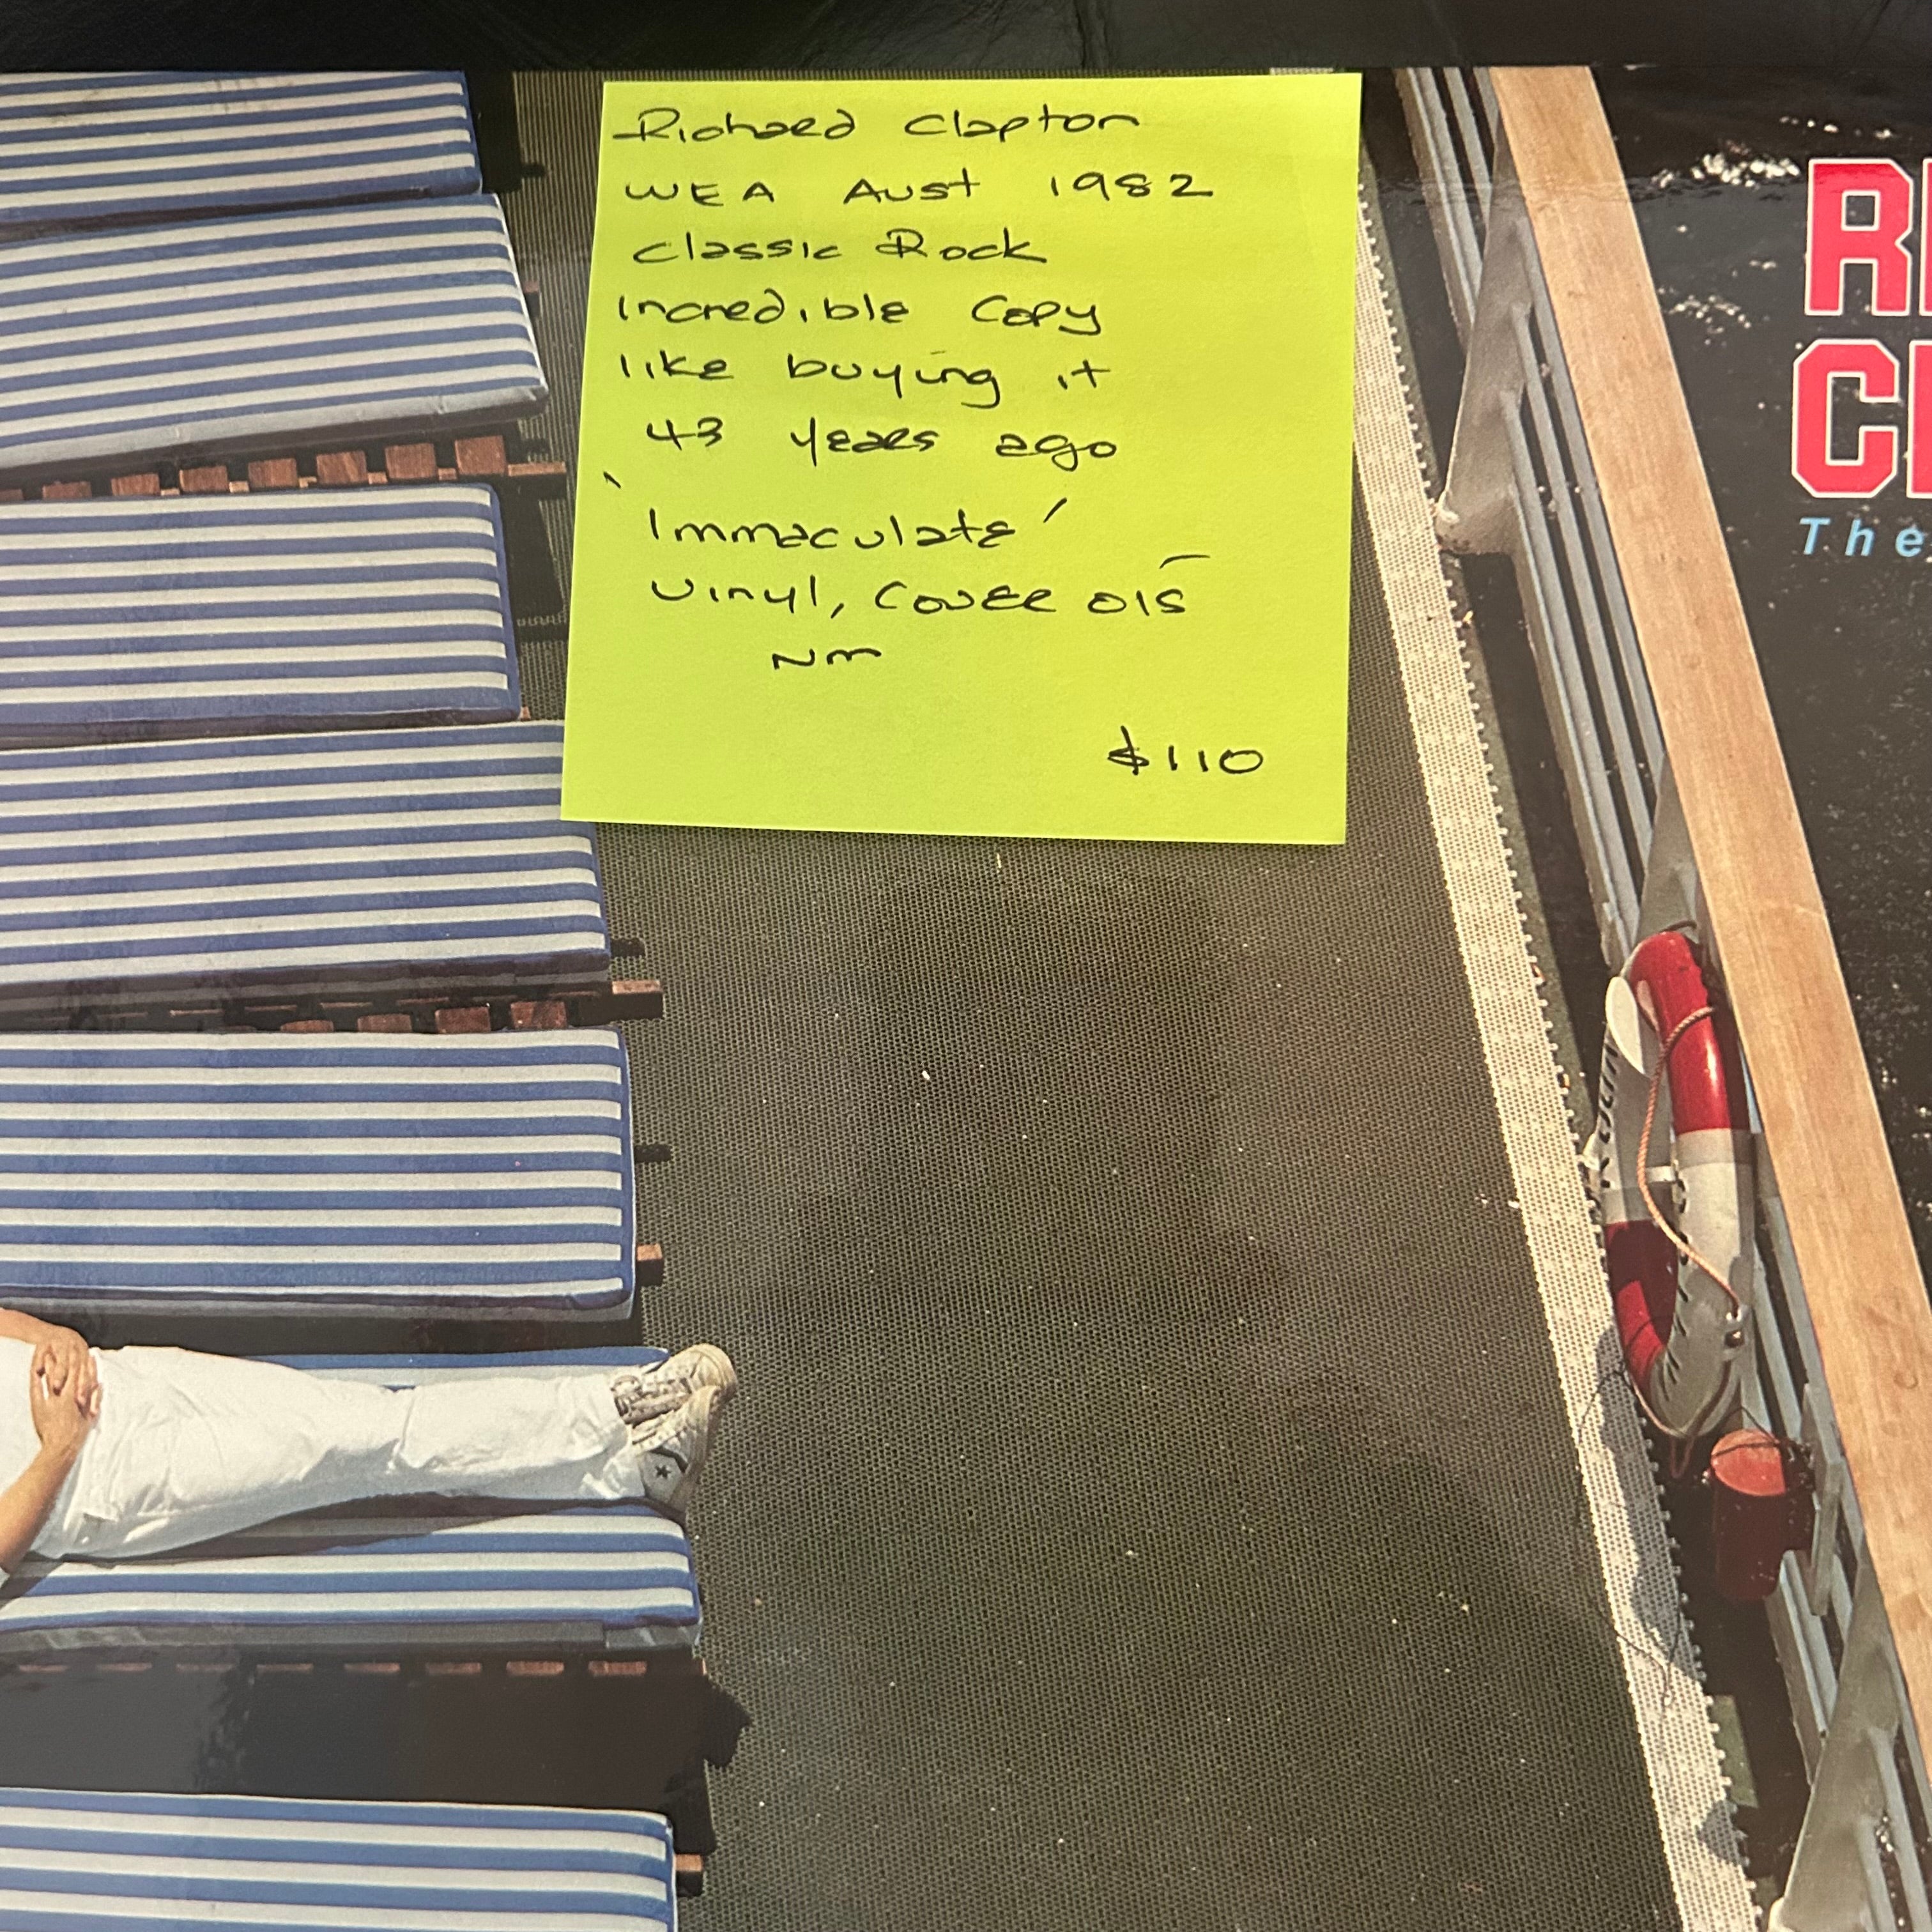 Richard Clapton
WEA Aust 1982
Classic Rock
Incredible Copy
like buying it
43 years ago
'Immaculate'
Vinyl, Cover OIS
NM
$110
RI
CL
The